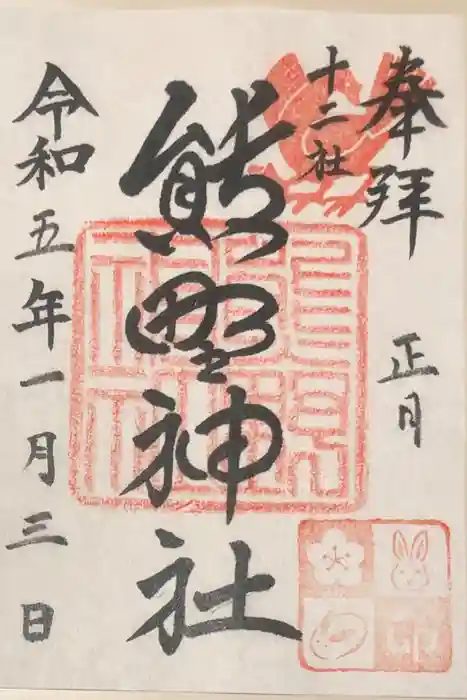 奉拝
正月
十二社
熊野神社
令和五年一月三日
卯